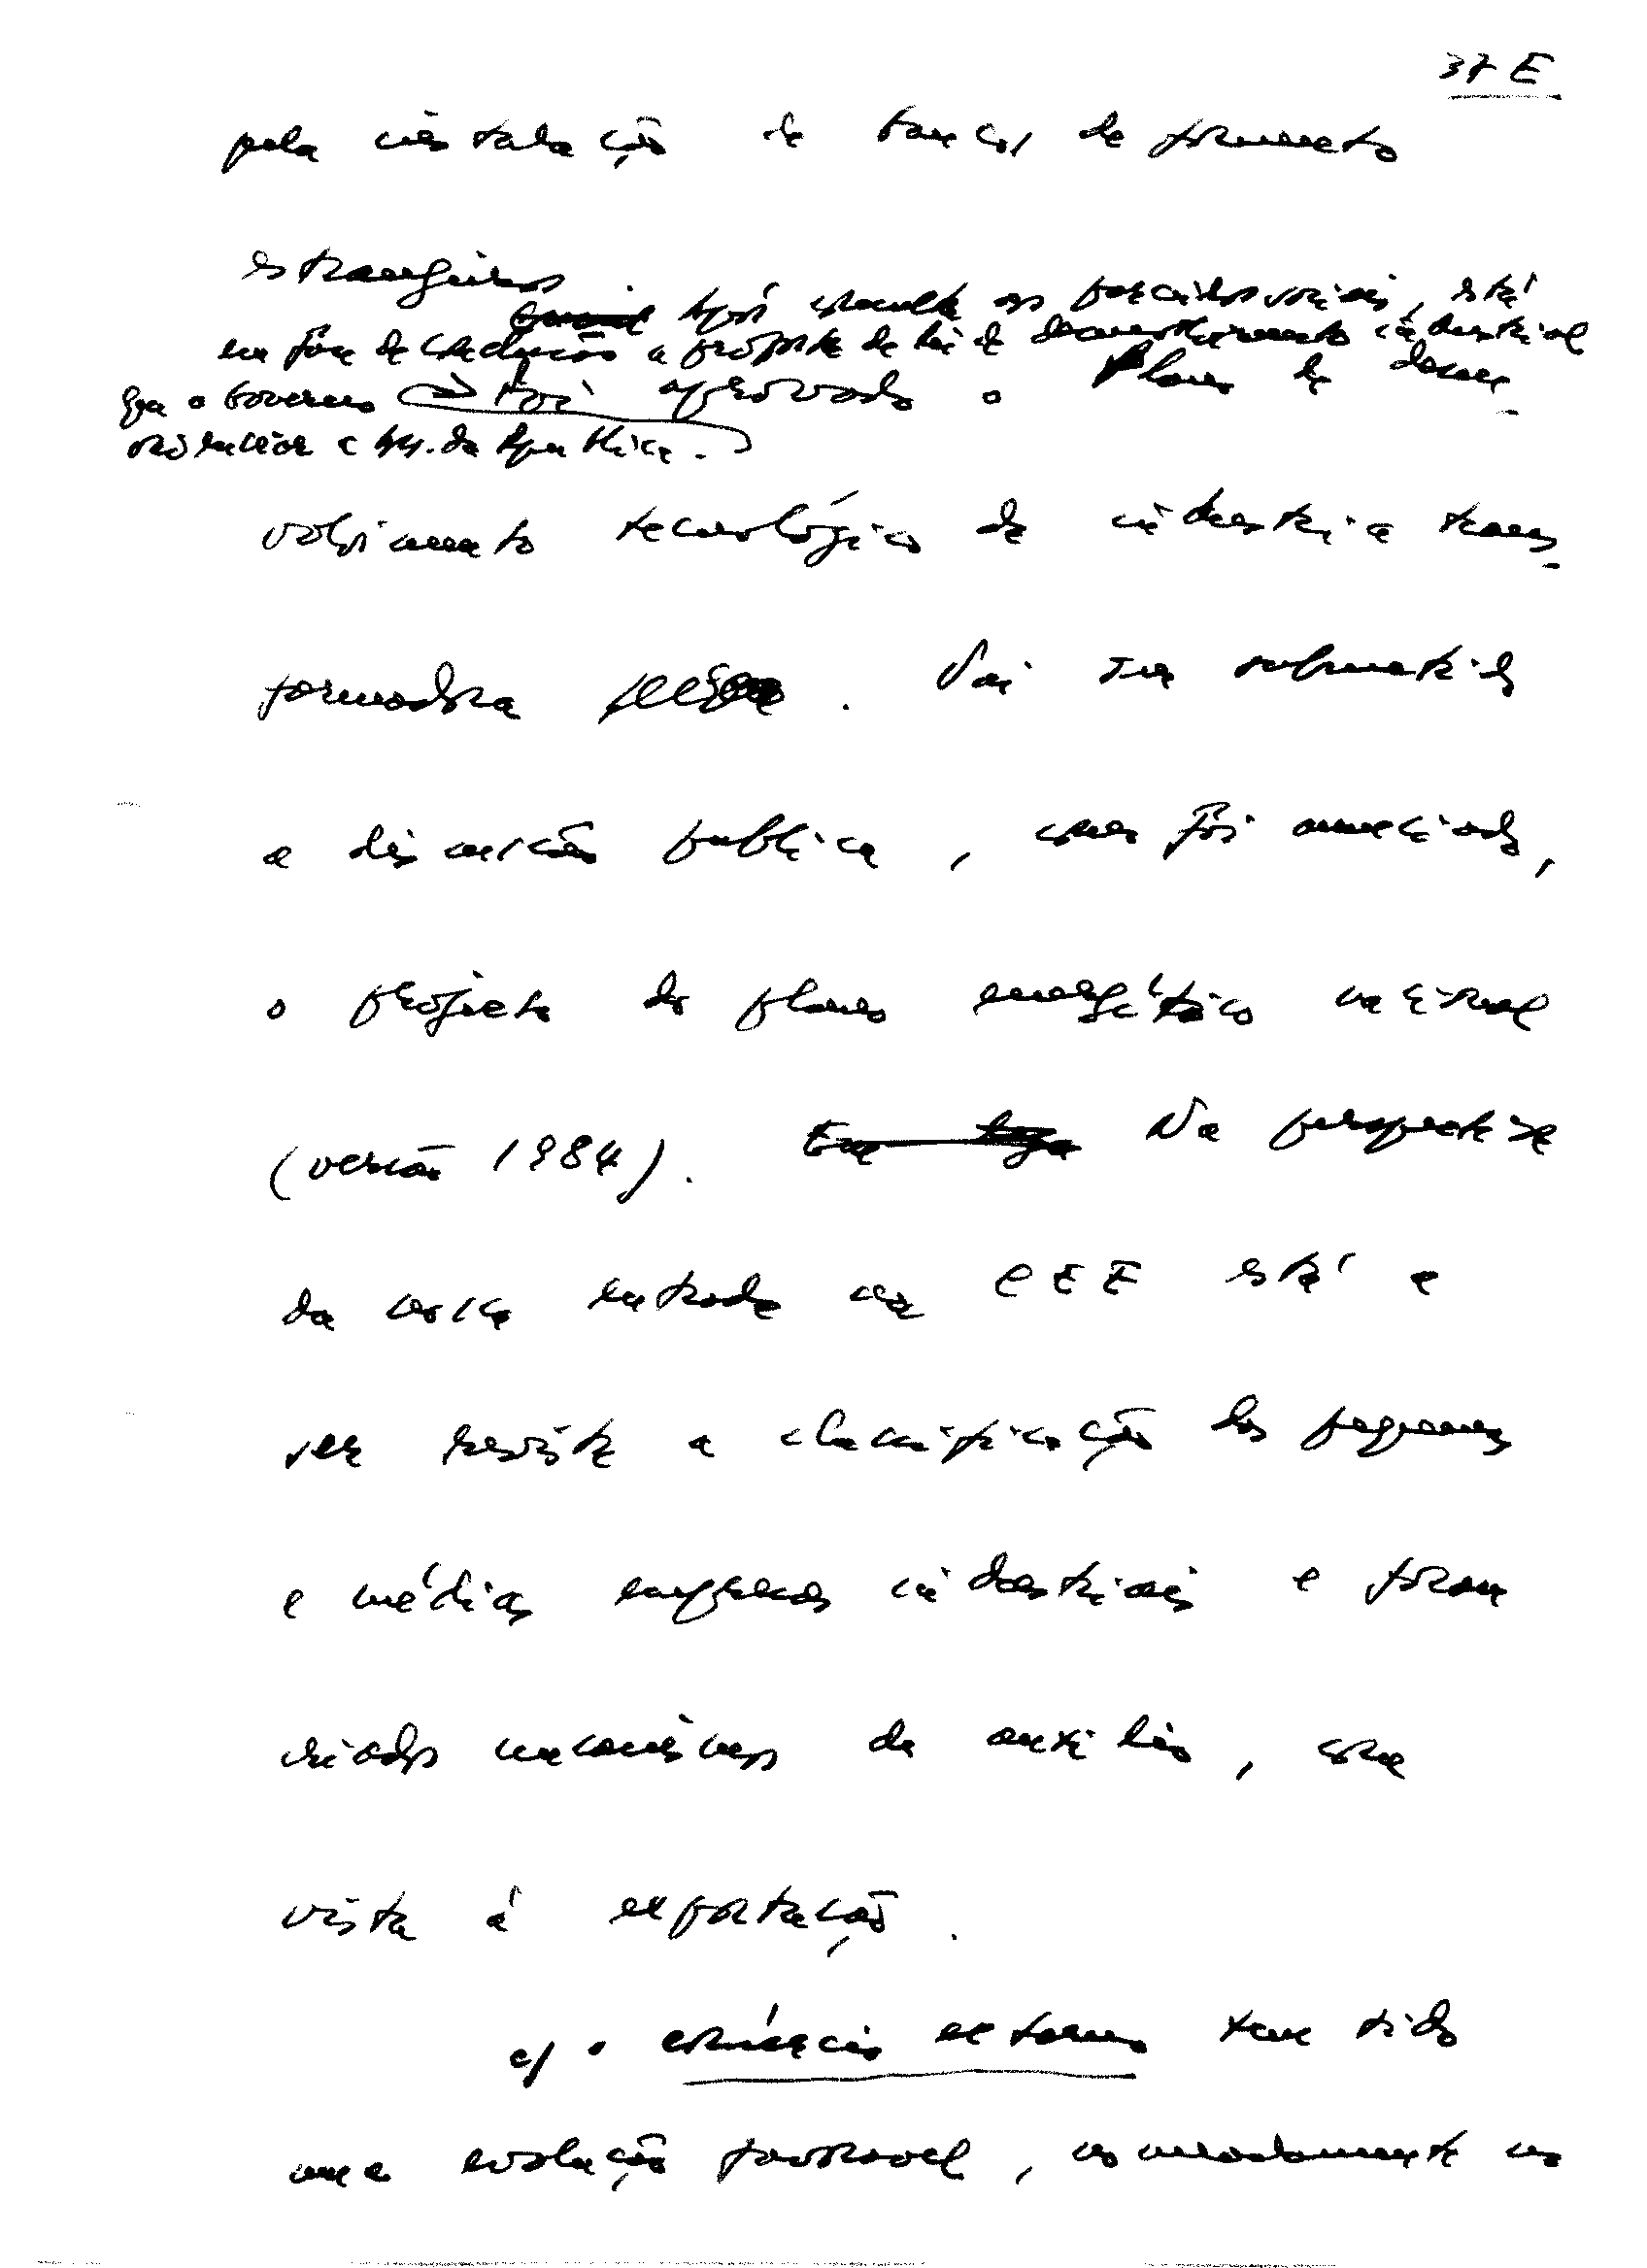 37 E
pela instalação de bancos de fomento
estrangeiros.
após consulta aos parceiros sociais, está
em fase de conclusão a proposta de lei de industrial
que o Governo
e
Foi aprovado o Plano de desen-
volvimento tecnológico da indústria trans-
formadora. Vai ser submetido
a discussão publica, como foi anunciado,
o projecto do plano energético nacional
(versão 1984). Na perspectiva
da nossa entrada na CEE está a
ser revista a classificação das pequenas
e médias empresas industriais e foram
criados mecanismos de auxílio, com
vista á exportação.
e) o comércio externo tem tido
uma evolução favoravel, nomeadamente no